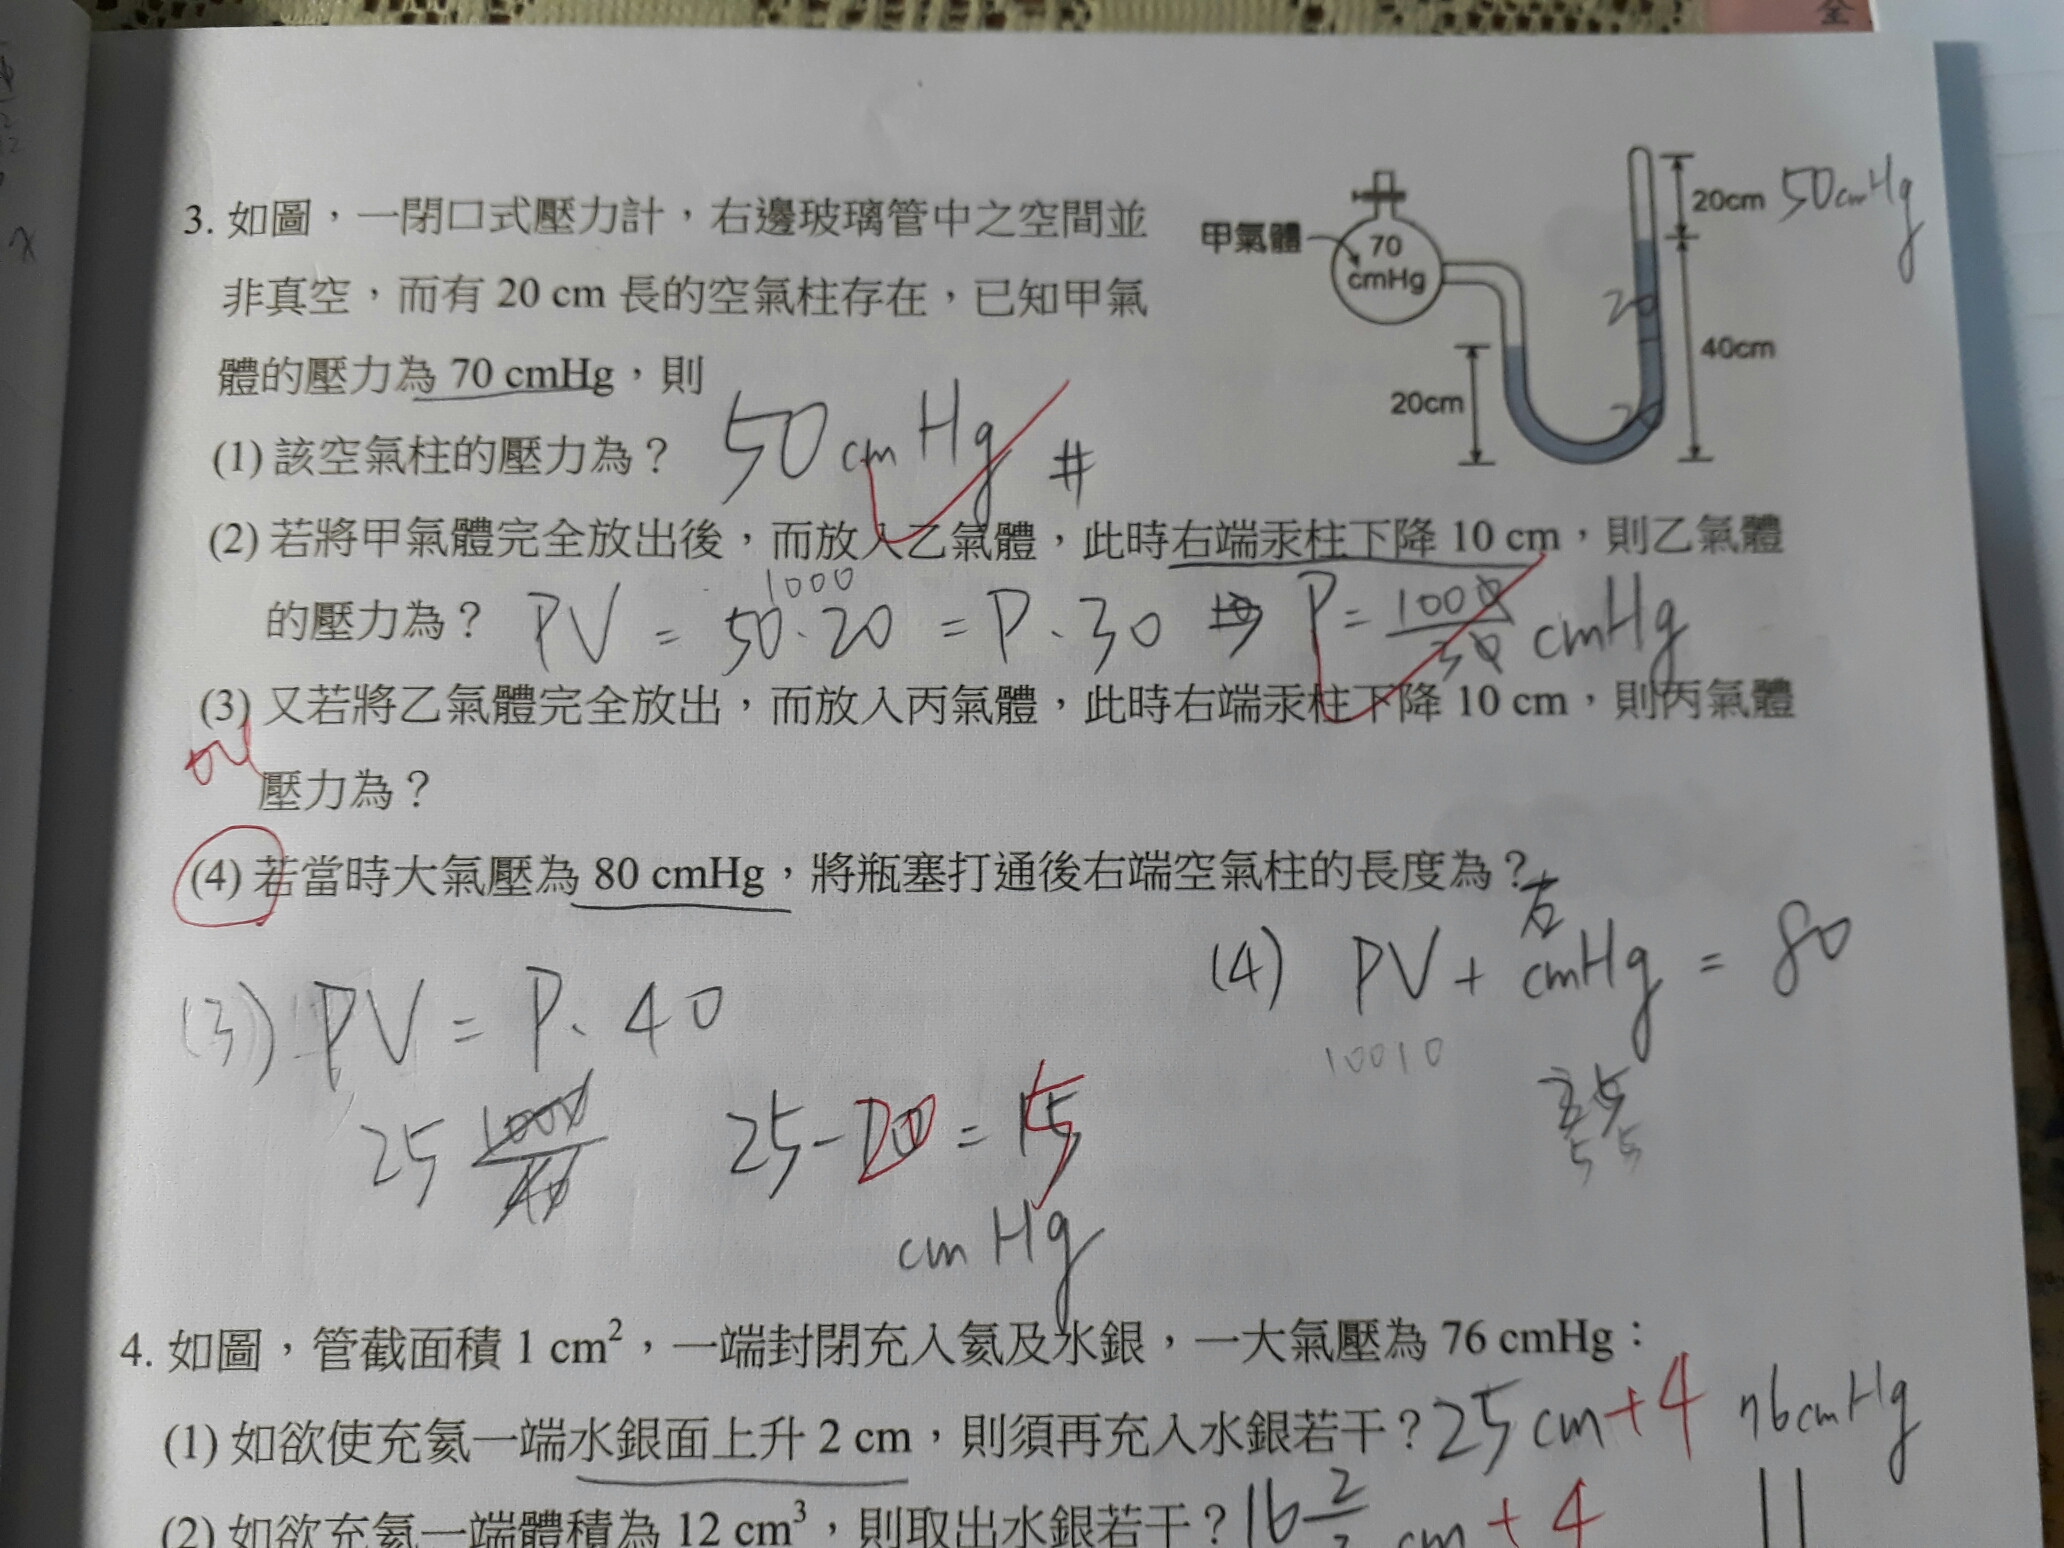 全
3. 如圖，一閉口式壓力計，右邊玻璃管中之空間並
非真空，而有 20 cm 長的空氣柱存在，已知甲氣
體的壓力為 70 cmHg，則
甲氣體
70
cmHg
20cm
50cmHg
20
40cm
20cm
20
(1) 該空氣柱的壓力為？ 50 cm Hg #
(2) 若將甲氣體完全放出後，而放入乙氣體，此時右端汞柱下降 10 cm，則乙氣體
1000
的壓力為？ PV = 50·20 = P·30 ⇒ P = 1000/30 cmHg
(3) 又若將乙氣體完全放出，而放入丙氣體，此時右端汞柱下降 10 cm，則丙氣體
壓力為？
(4) 若當時大氣壓為 80 cmHg，將瓶塞打通後右端空氣柱的長度為？
(4) PV + 右cmHg = 80
(3) PV = P·40
10010
25 1000/40 25-20=15
cm Hg
4. 如圖，管截面積 1 cm²，一端封閉充入氦及水銀，一大氣壓為 76 cmHg：
(1) 如欲使充氦一端水銀面上升 2 cm，則須再充入水銀若干？25 cm+4 76cmHg
(2) 如欲充氦一端體積為 12 cm³，則取出水銀若干？16 2/3 cm +4